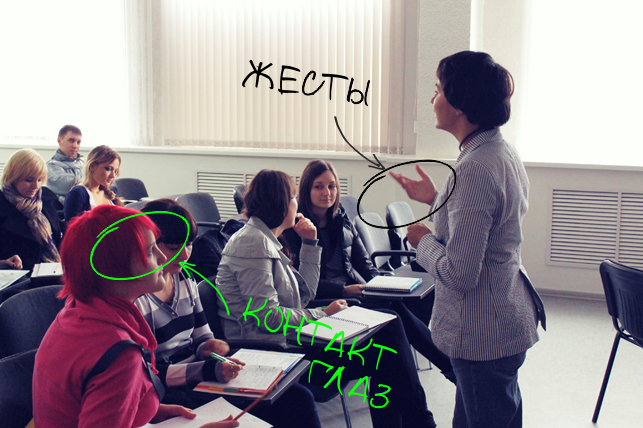 ЖЕСТЫ
КОНТАКТ
ГЛАЗ